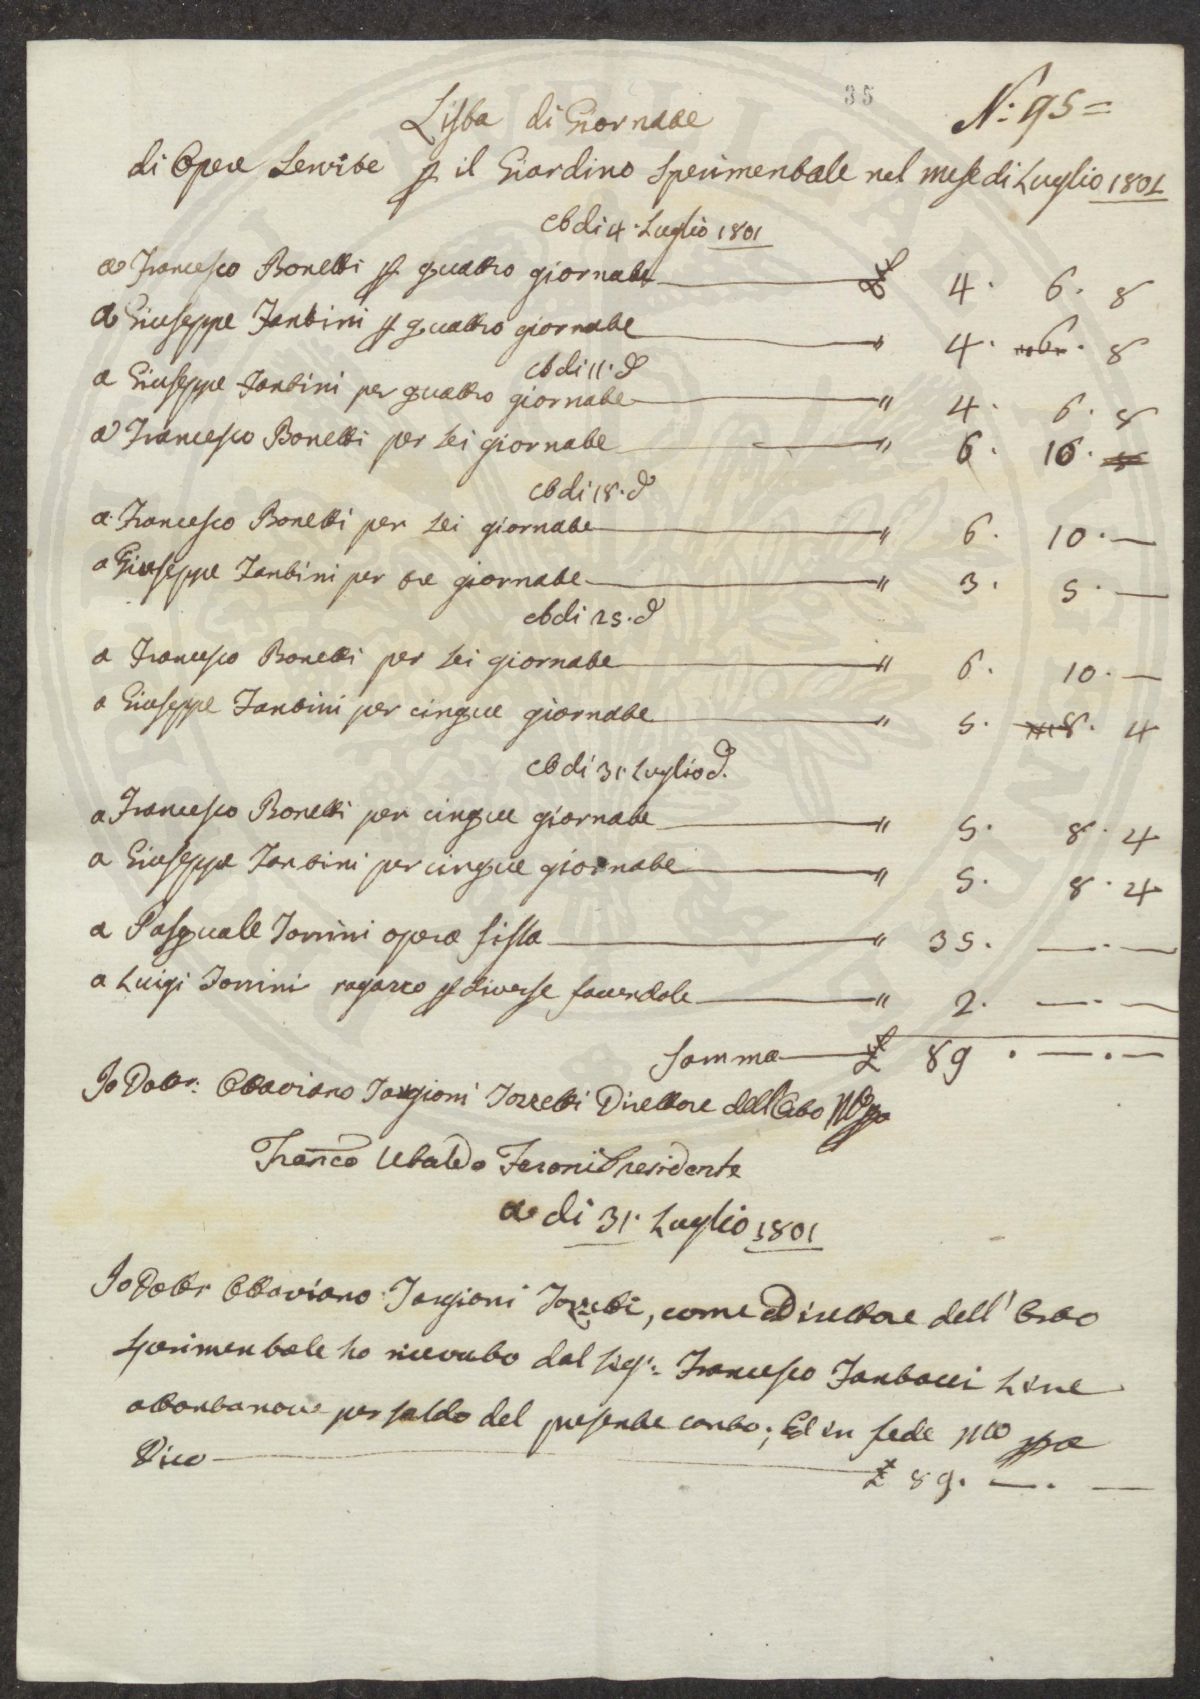 35
N.° 95 =
Lista di Giornate
di Opere Servite p il Giardino Sperimentale nel mese di Luglio 1801
a di 4. Luglio 1801
a Francesco Bonetti p quattro giornate £ 4. 6. 8
a Giuseppe Fantini p quattro giornate " 4. 6. 8
a di 11. d°
a Giuseppe Fantini per quattro giornate " 4. 6. 8
a Francesco Bonetti per sei giornate " 6. 10.
a di 18. d°
a Francesco Bonetti per sei giornate " 6. 10. —
a Giuseppe Fantini per tre giornate " 3. 5. —
a di 25. d°
a Francesco Bonetti per sei giornate " 6. 10. —
a Giuseppe Fantini per cinque giornate " 5. 8. 4
a di 31. Luglio d°.
a Francesco Bonetti per cinque giornate " 5. 8. 4
a Giuseppe Fantini per cinque giornate " 5. 8. 4
a Pasquale Tonini opera fissa " 35. — . —
a Luigi Tonini ragazzo p diverse facendole " 2. — . —
Somma £ 89 . — . —
Io Dottr. Ottaviano Targioni Tozzetti Direttore dell'Orto mo ppa
Franco Ubaldo Feroni Presidente
a di 31. Luglio 1801
Io Dottr Ottaviano Targioni Tozzetti, come Direttore dell' Orto
Sperimentale ho ricevuto dal Sigr. Francesco Fantacci Lire
ottantanove per saldo del presente conto; Ed in fede mo ppa
Dico £ 89. — . —